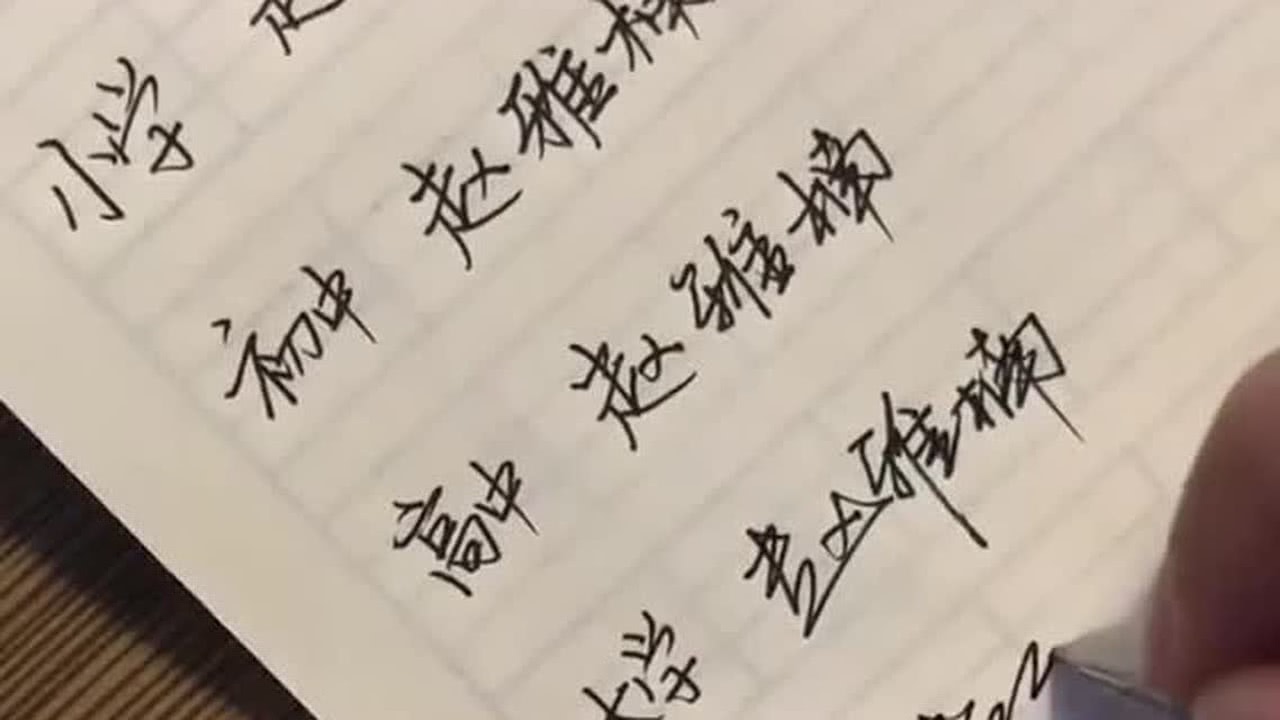 小学
初中 赵雅
高中 赵雅楠
大学 赵雅楠